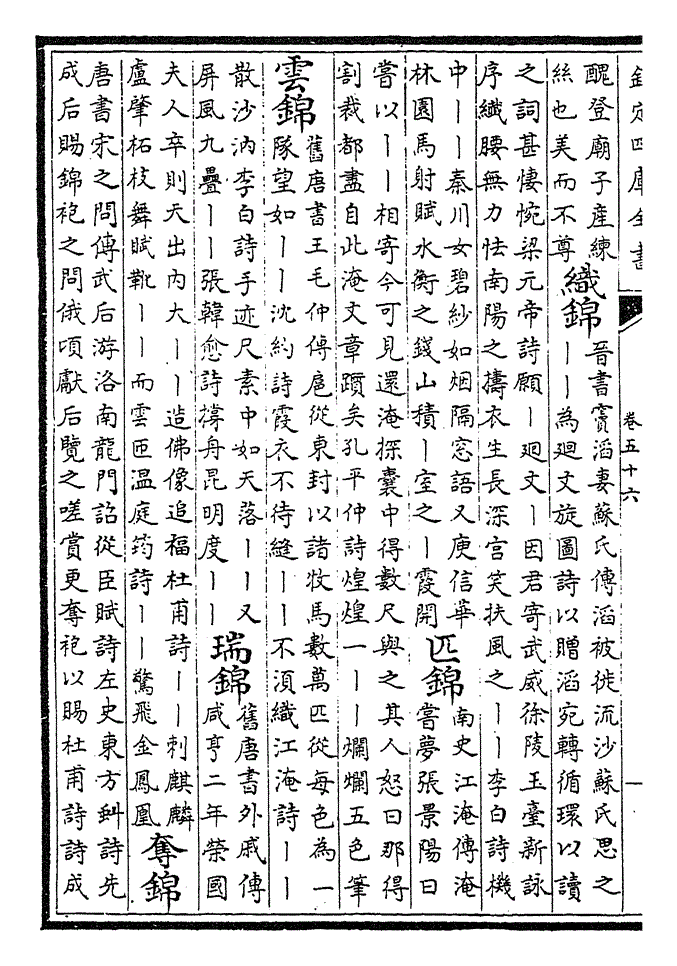 欽定四庫全書
卷五十六
一
醜登廟子產練
絲也美而不尊
織錦
晉書竇滔妻蘇氏傳滔被徙流沙蘇氏思之
丨丨為廻文旋圖詩以贈滔宛轉循環以讀
之詞甚悽惋梁元帝詩願丨廻文丨因君寄武威徐陵玉臺新詠
序纖腰無力怯南陽之擣衣生長深宮笑扶風之丨丨李白詩機
中丨丨秦川女碧紗如烟隔窓語又庾信華
林園馬射賦水衡之錢山積丨室之丨霞開
匹錦
南史江淹傳淹
嘗夢張景陽曰
嘗以丨丨相寄今可見還淹探囊中得數尺與之其人怒曰那得
割裁都盡自此淹文章躓矣孔平仲詩煌煌一丨丨爛爛五色筆
雲錦
舊唐書王毛仲傳扈從東封以諸牧馬數萬匹從每色為一
隊望如丨丨沈約詩霞衣不待縫丨丨不湏織江淹詩丨丨
散沙汭李白詩手迹尺素中如天落丨丨又
屏風九疊丨丨張韓愈詩撐舟昆明度丨丨
瑞錦
舊唐書外戚傳
咸亨二年榮國
夫人卒則天出內大丨丨造佛像追福杜甫詩丨丨刺麒麟
盧肇柘枝舞賦靴丨丨而雲匝温庭筠詩丨丨驚飛金鳳凰
奪錦
唐書宋之問傳武后游洛南龍門詔從臣賦詩左史東方虬詩先
成后賜錦袍之問俄頃獻后覽之嗟賞更奪袍以賜杜甫詩詩成